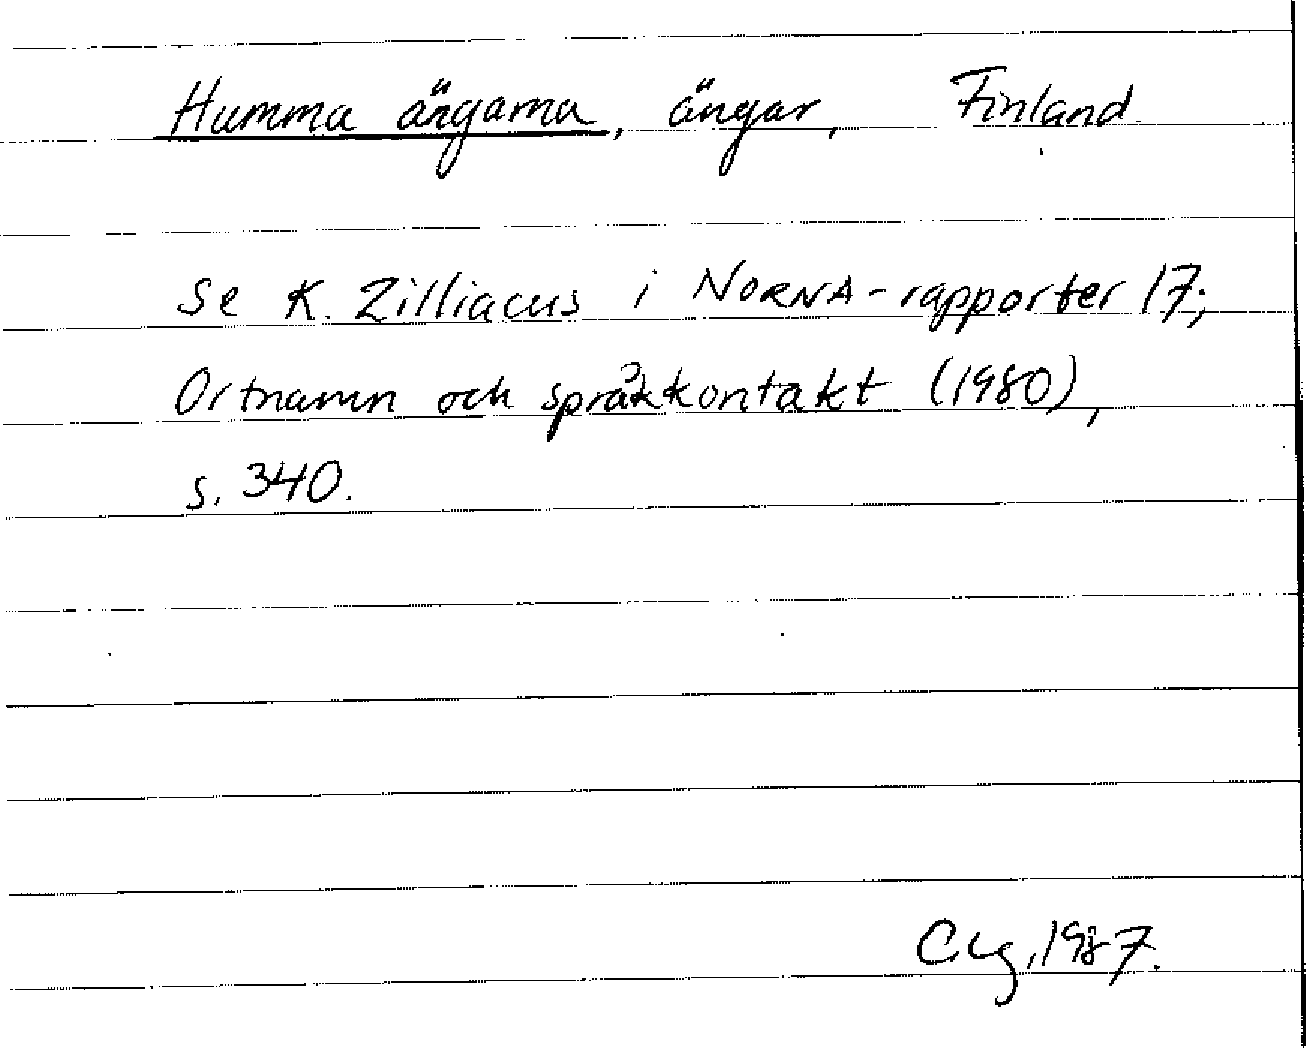 Humma ängarna, ängar, Finland
Se K. Zilliacus i NORNA-rapporter 17;
Ortnamn och språkkontakt (1980),
s. 340.
1987.